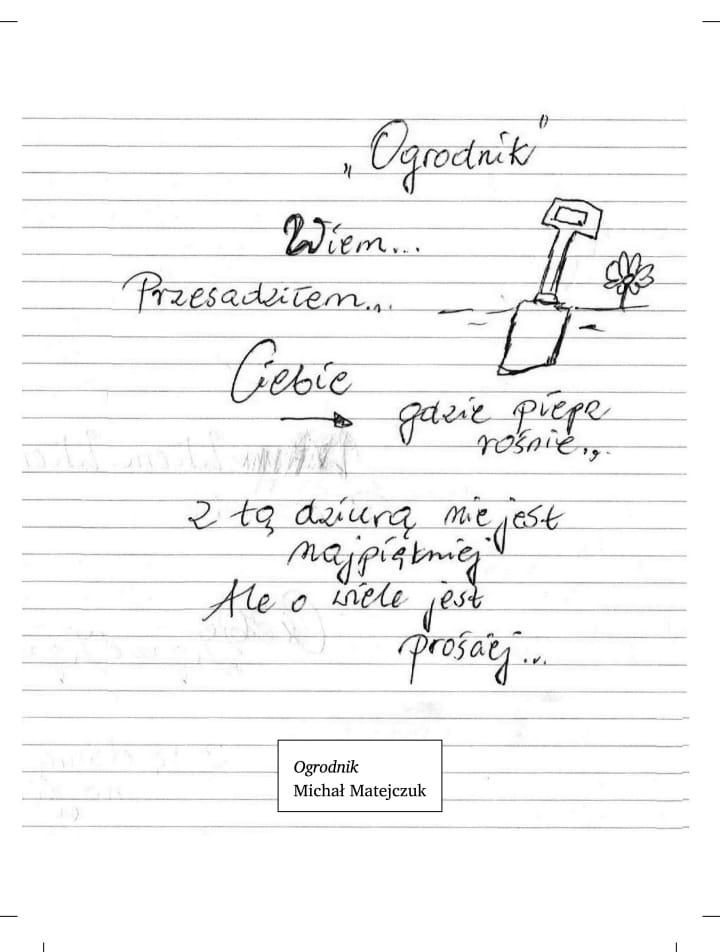 „Ogrodnik”
Wiem...
Przesadziłem...
Ciebie
→ gdzie pieprz
rośnie...
Z tą dziurą nie jest
najpiękniej
Ale o wiele jest
prościej...
Ogrodnik
Michał Matejczuk